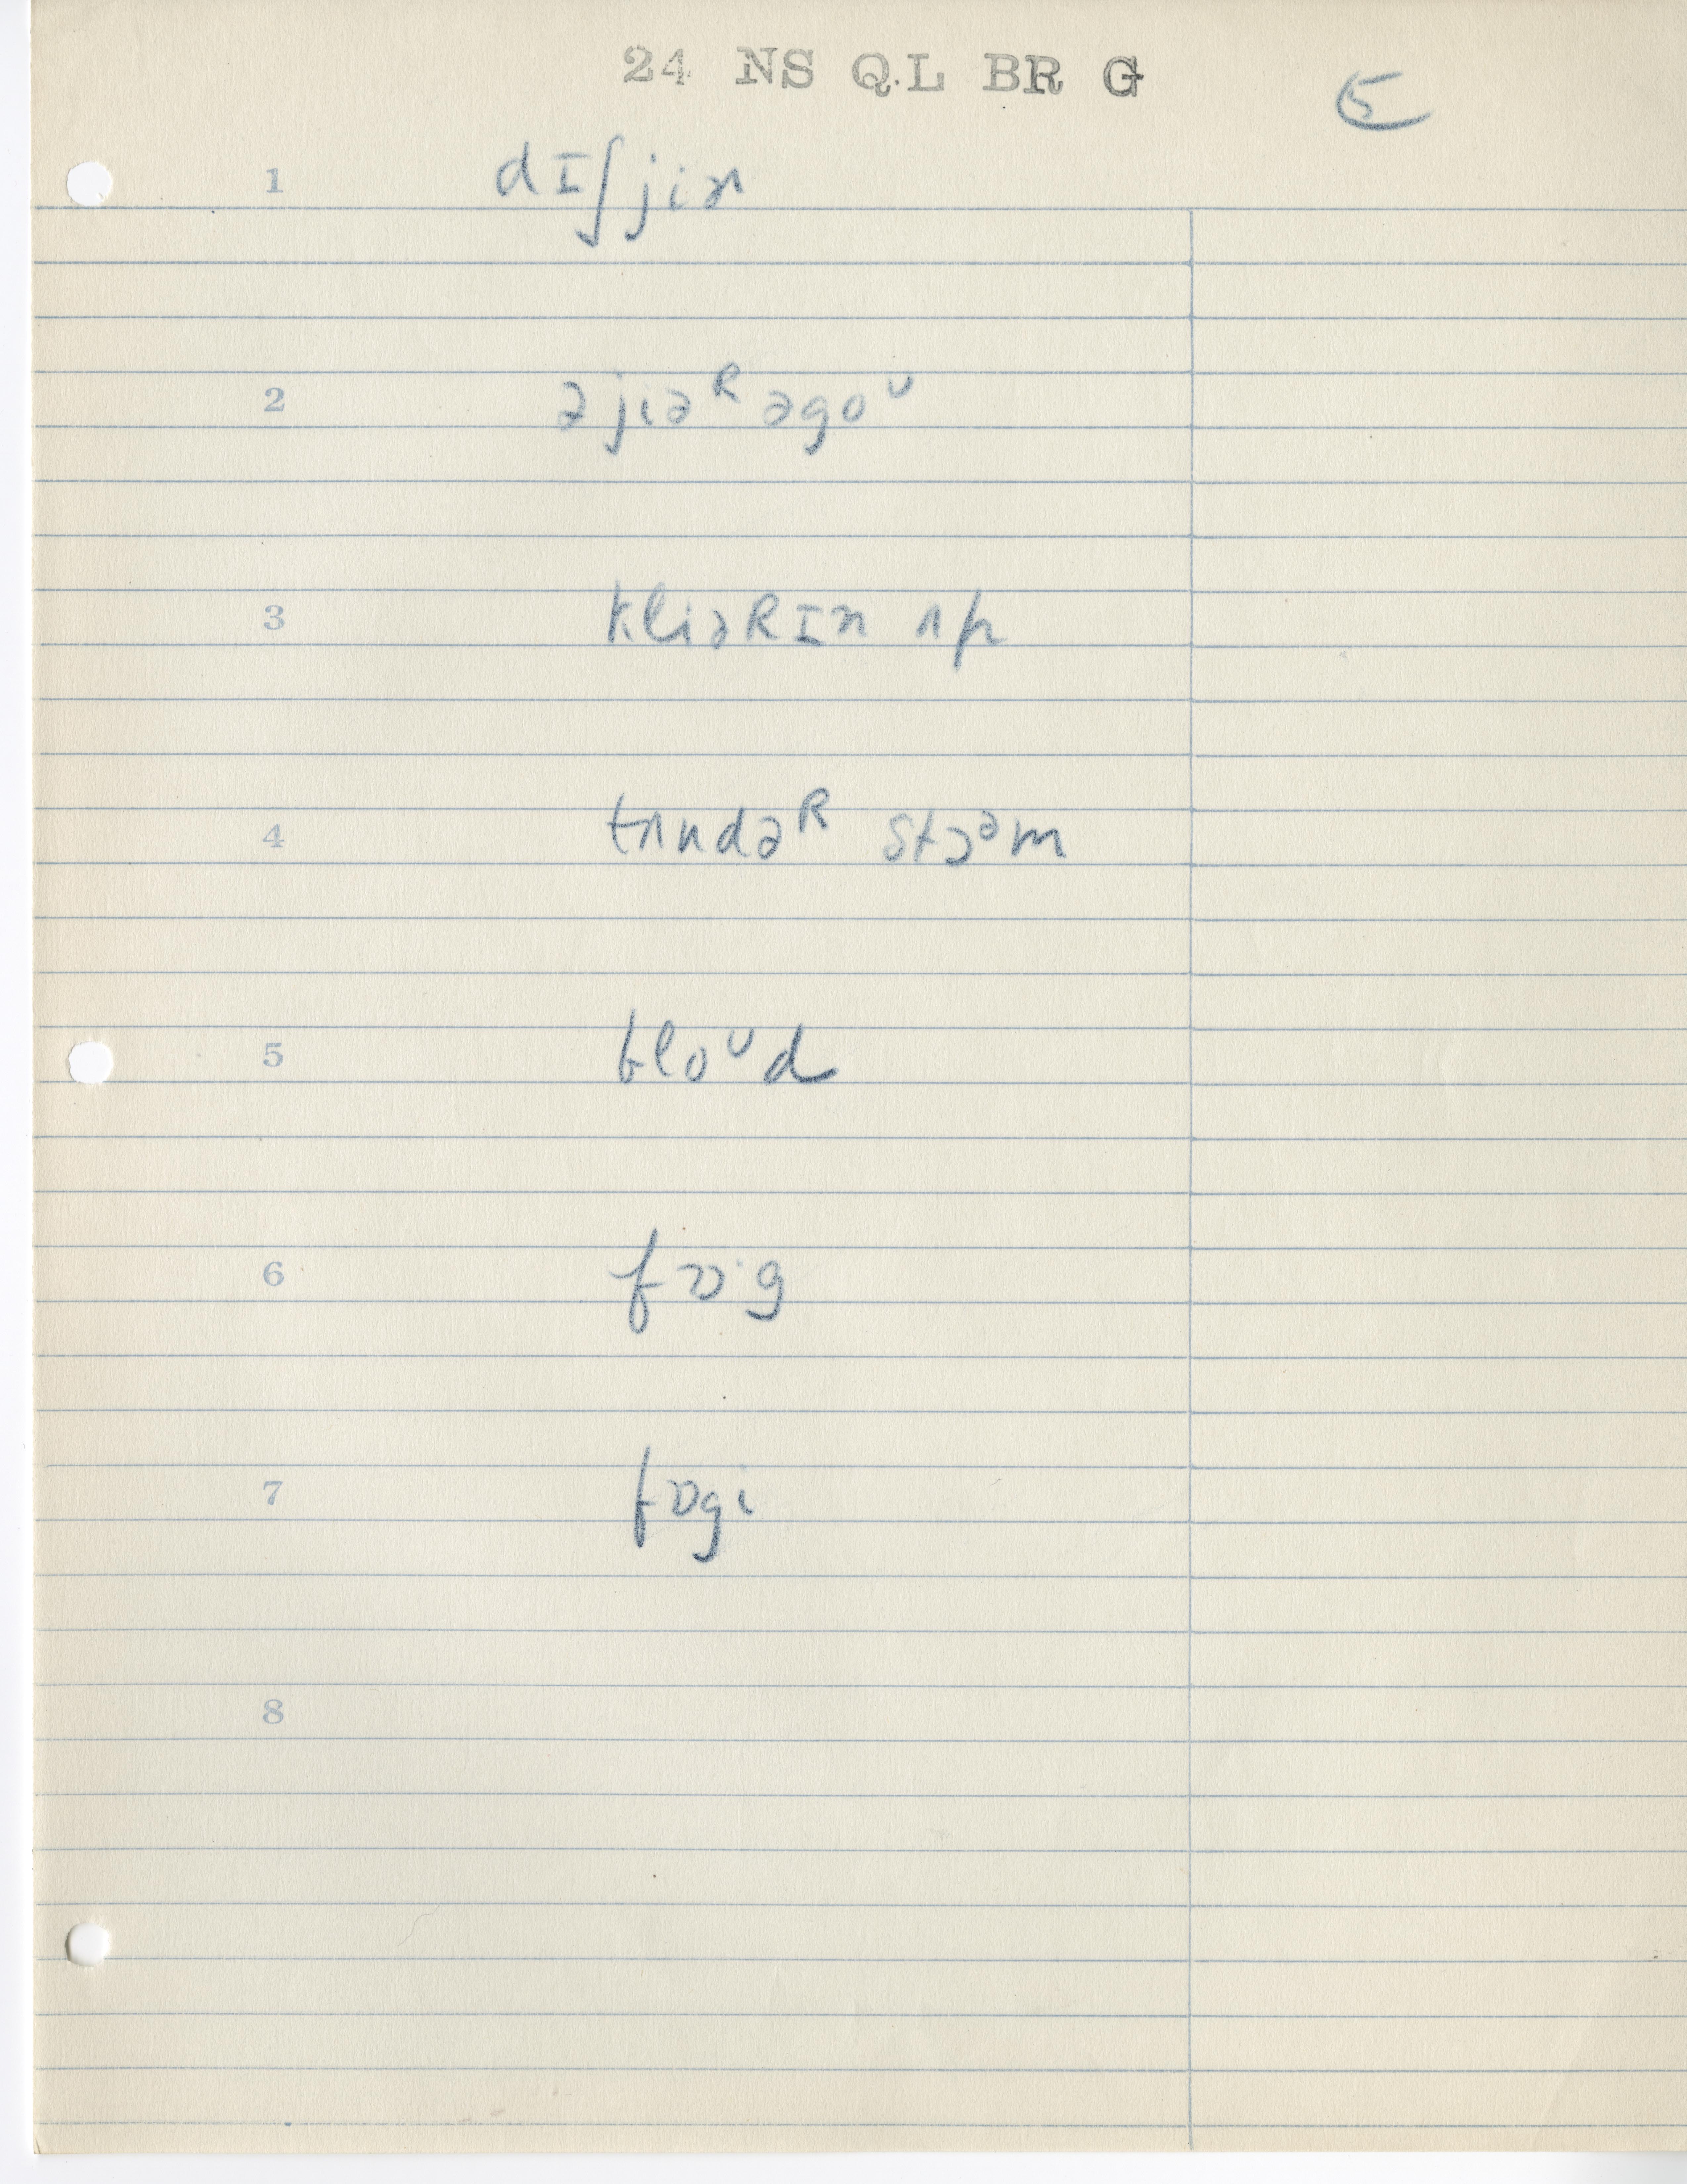 24 NS QL BR G
5
1 dɪʃjiɚ
2 əjiəᴿəgoᶸ
3 kliəRɪn ʌp
4 tʌndəᴿ stɔᵊm
5 bloᶸd
6 fɒˑg
7 fɒgi
8